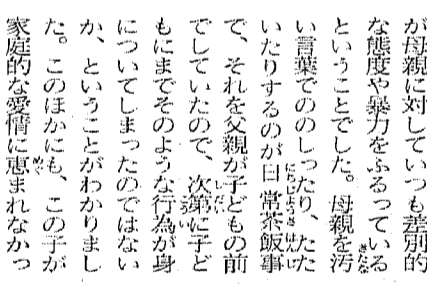 が母親に対していつも差別的
な態度や暴力をふるっている
ということでした。母親を汚
い言葉でののしったり、たた
いたりするのが日常茶飯事
で、それを父親が子どもの前
でしていたので、次第に子ど
もにまでそのような行為が身
についてしまったのではない
か、ということがわかりまし
た。このほかにも、この子が
家庭的な愛情に恵まれなかっ